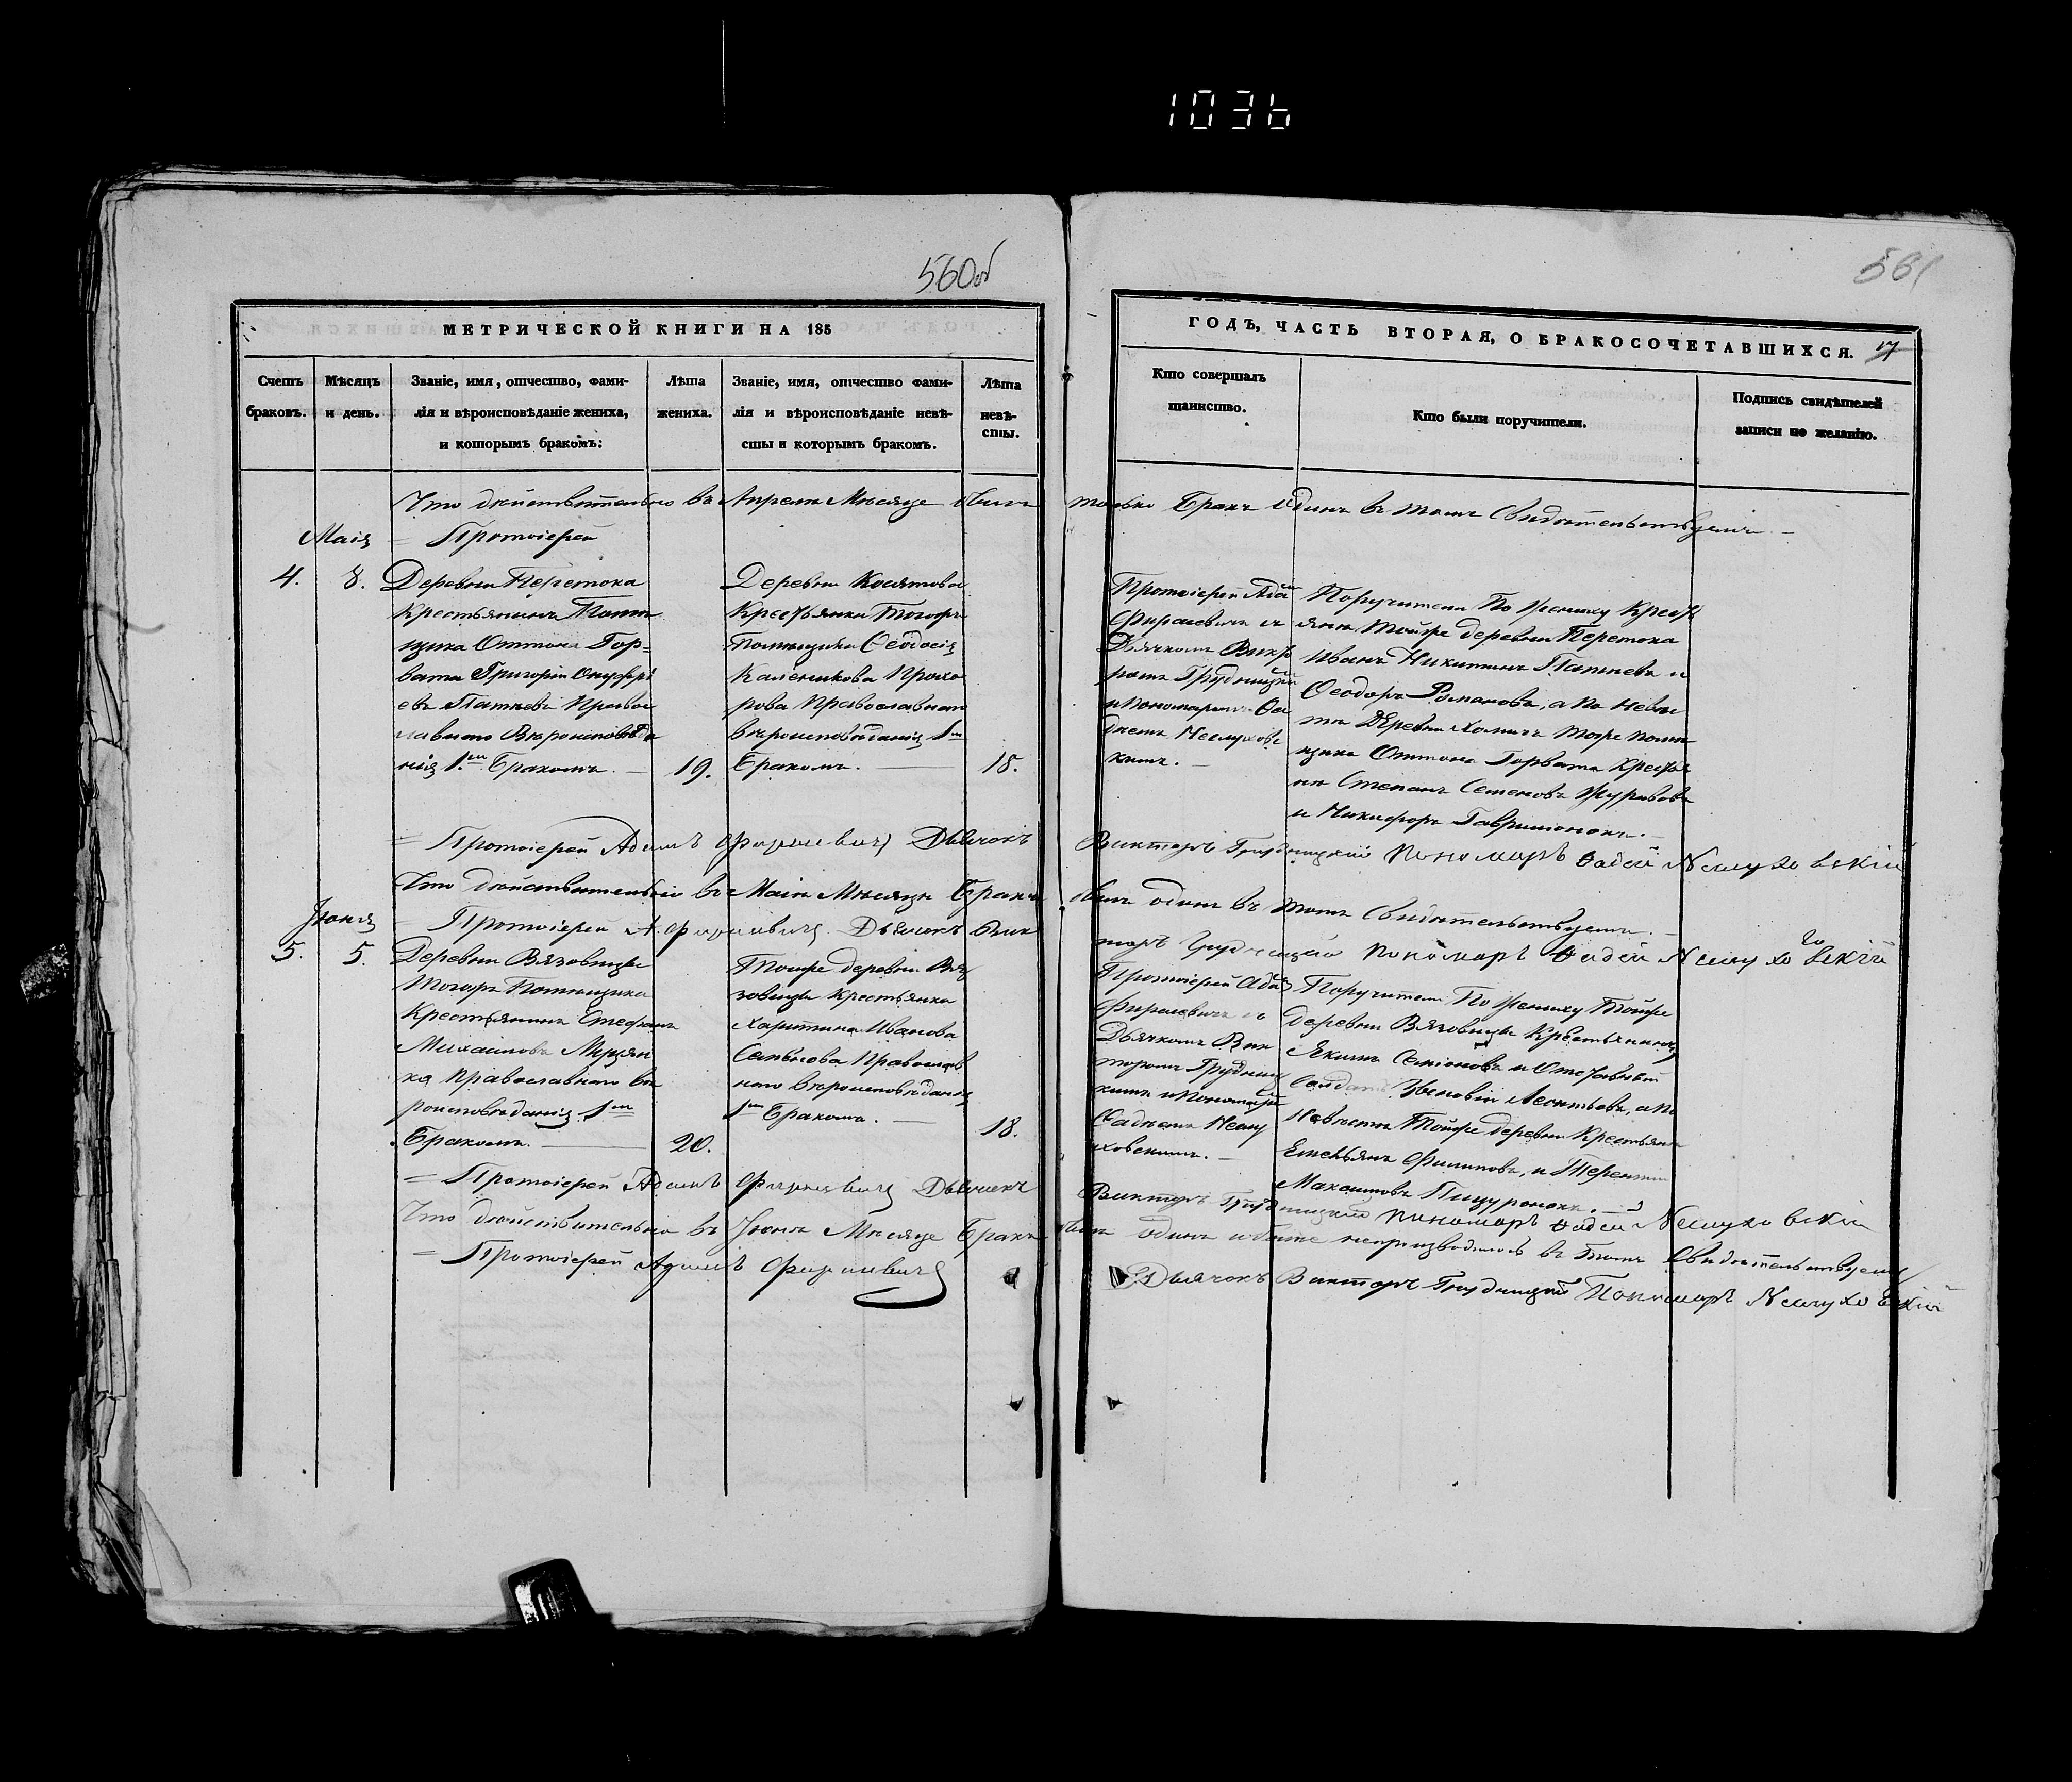 1036
560об
561
МЕТРИЧЕСКОЙ КНИГИ НА 185
ГОДЪ, ЧАСТЬ ВТОРАЯ, О БРАКОСОЧЕТАВШИХСЯ.
17
Счетъ
браковъ.
Мѣсяцъ
и день.
Званіе, имя, отчество, фами-
лія и вѣроисповѣданіе жениха,
и которымъ бракомъ:
Лѣта
жениха.
Званіе, имя, отчество фами-
лія и вѣроисповѣданіе невѣ-
сты и которымъ бракомъ.
Лѣта
невѣ-
сты.
Кто совершалъ
таинство.
Кто были поручители.
Подпись свидѣтелей
записи по желанію.
Что дѣйствительно въ Апрелѣ Мѣсяце былъ только Бракъ одинъ въ томъ Свидѣтельствуемъ. —
Маія
= Протоіерей
4.
8.
Деревни Перетока
Крестьянинъ Помѣ
щика Оттона Гор=
вата Григорій Онуфрі
евъ Патѣевъ Правос
лавнаго Вѣроисповѣда
нія 1мъ Бракомъ. —
19.
Деревни
Крестьянка Тогожъ
Помѣщика Ѳеодосія
Каленикова Прохо
рова Православнаго
вѣроисповѣданія 1мъ
Бракомъ. —
18.
Протоіерей Адамъ
Фирисевичъ съ
Дьячкомъ Викт
ромъ Грудницкимъ
и Пономаремъ Ѳа
дѣемъ Неслуховс
кимъ. —
Поручители По Жениху Кресть
яне Тойже деревни Перетока
Иванъ Никитинъ Патѣевъ и
Ѳеодоръ Романовъ, а по Невѣс
тѣ Деревни Тоже Помѣ
щика Оттона Горвата Крестья
не Степанъ Семеновъ Журавовъ
и Никифоръ Гаврилюнокъ. —
= Протоіерей Адамъ Фирисевичъ Дьячокъ Викторъ Грудницкій Пономаръ Ѳадей Неслуховскій
Что дѣйствительно въ Маіи Мѣсяцѣ Бракъ былъ одинъ въ томъ Свидѣтельствуемъ. —
Іюня
= Протоіерей А. Фирисевичъ Дьячокъ Вик
торъ Грудницкій Пономаръ Ѳадей Неслуховскій
5.
5.
Деревни Вязовицы
Тогожъ Помѣщика
Крестьянинъ Стефанъ
Михаиловъ
Православнаго вѣ
роисповѣданія 1мъ
Бракомъ. —
20.
Тойже деревни Вя
зовицы Крестьянка
Харитина Иванова
Православ
наго вѣроисповѣданія
1мъ Бракомъ. —
18.
Протоіерей Адамъ
Фирисевичъ съ
Дьячкомъ Вик
торомъ Грудниц
кимъ и Пономаремъ
Ѳадѣемъ Неслу
ховскимъ. —
Поручители По Жениху Тойже
деревни Вязовицы Крестьянинъ
Якимъ Семіоновъ и Отставный
Солдатъ Зѣновій Леонтьевъ, а по
Невѣстѣ Тойже деревни Крестьяне
Емельянъ Филиповъ, и Терентій
Максимовъ
= Протоіерей Адамъ Фирисевичъ Дьячокъ Викторъ Грудницкій Пономаръ Ѳадей Неслуховскій
Что дѣйствительно въ Іюнѣ Мѣсяце Бракъ былъ одинъ и болѣе непроизводилось въ Томъ Свидѣтельствуемъ
= Протоіерей Адамъ Фирисевичъ Дьячокъ Викторъ Грудницкій Пономаръ Неслуховскій